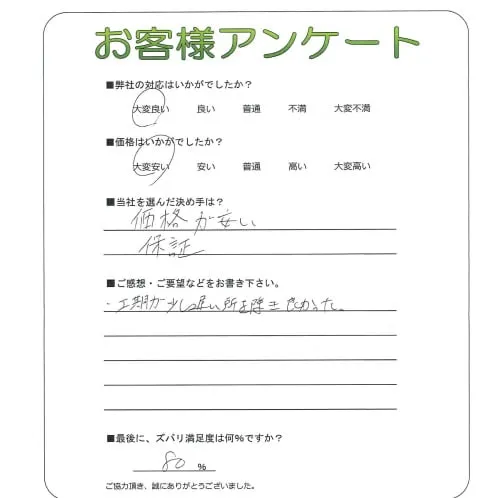 お客様アンケート
■弊社の対応はいかがでしたか？
大変良い 良い 普通 不満 大変不満
■価格はいかがでしたか？
大変安い 安い 普通 高い 大変高い
■当社を選んだ決め手は？
価格が安い
保証
■ご感想・ご要望などをお書き下さい。
・工期が少し遅い所を除き良かった。
■最後に、ズバリ満足度は何%ですか？
80 %
ご協力頂き、誠にありがとうございました。